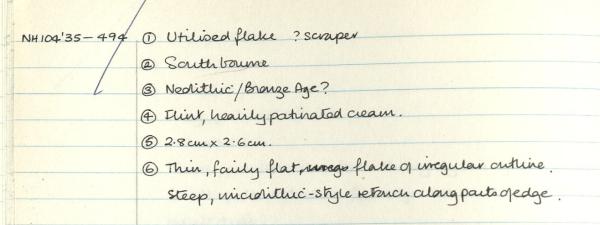 NH104'35-494 ① Utilised flake ? scraper
② Southbourne
③ Neolithic/Bronze Age?
④ Flint, heavily patinated cream.
⑤ 2.8cm x 2.6cm.
⑥ Thin, fairly flat, flake of irregular outline.
Steep, microlithic-style retouch along parts of edge.